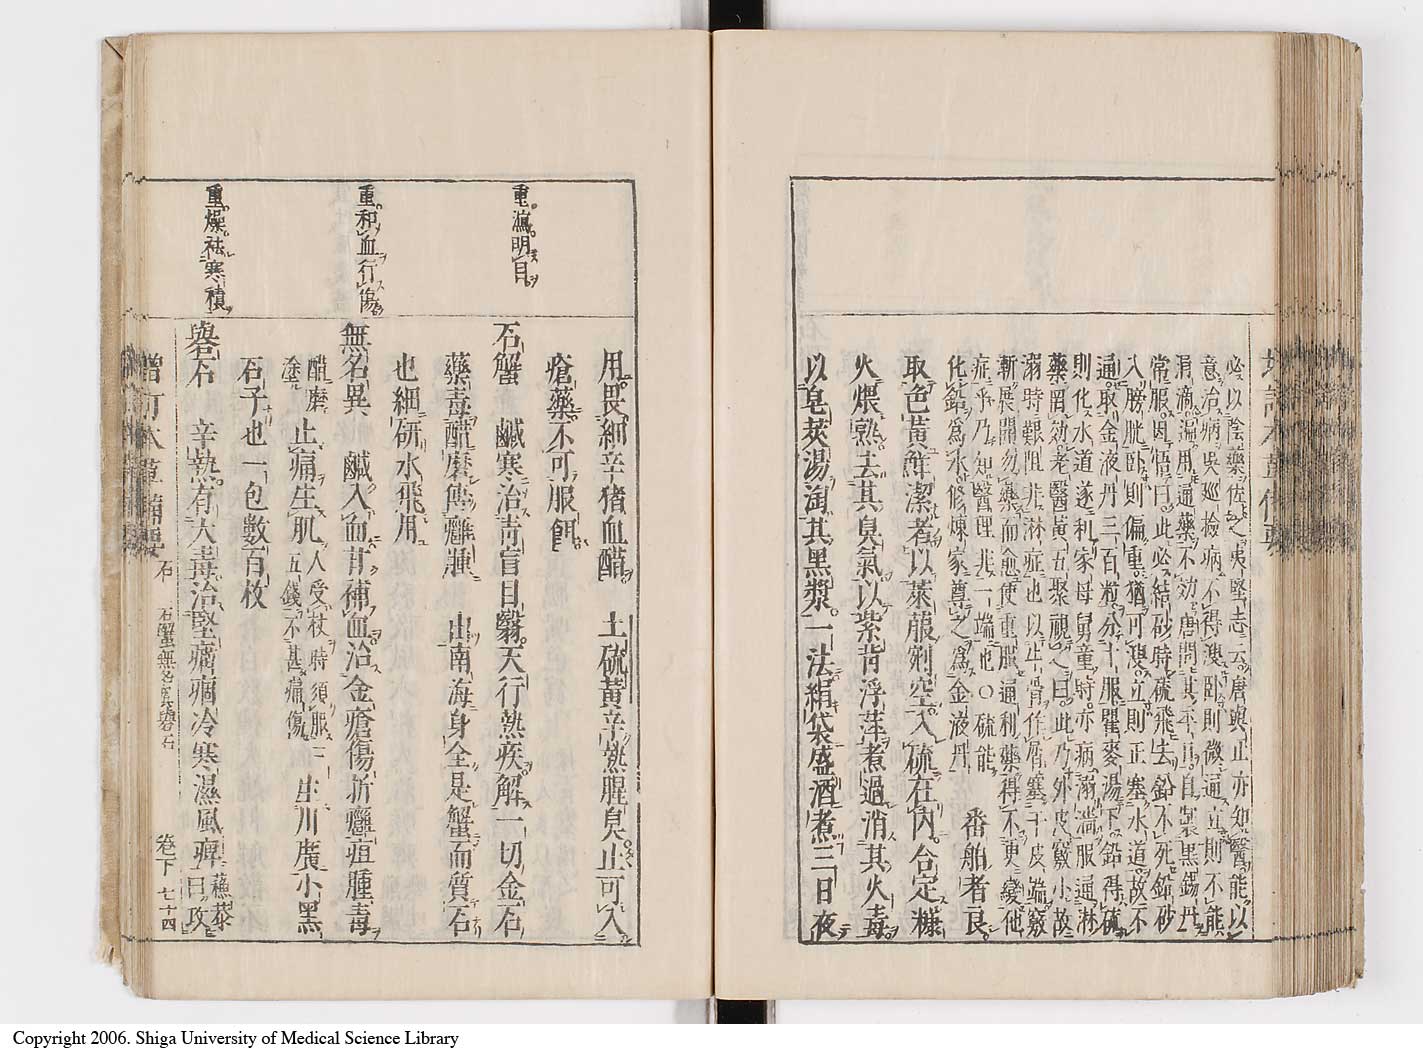 必以陰藥佐之夷堅志云唐與正亦知醫能以
意治病吳巡檢病不得溲臥則微通立則不能
涓滴遍用通藥不効唐問其平日自製黑錫丹
常服因悟曰此必結砂時硫飛去鉛不死鉛砂
入膀胱臥則偏重猶可溲立則正塞水道故不
通取金液丹三百粒分十服瞿麥湯下鉛得硫
則化水道遂利家母舅童時亦病溺濇服通淋
藥罔効老醫黃五聚視之曰此乃外皮竅小故
溺時艱阻非淋症也以牛骨作屑塞于皮端竅
漸展開勿藥而愈使重服通利藥得不更變他
症乎乃知醫理非一端也〇硫能
化鉛為水修煉家尊之為金液丹
番舶者良
取色黃鮮潔者以萊菔剜空入硫在內合定糠
火煨熟去其臭氣以紫背浮萍煮過消其火毒
以皂莢湯淘其黑漿一法絹袋盛酒煮三日夜
重瀉明目
重和血行傷
重燥祛寒積
用畏細辛猪血醋 土硫黃辛熱腥臭止可入
瘡藥不可服餌
石蟹 鹹寒治青盲目翳天行熱疾解一切金石
藥毒醋磨傅癰腫 出南海身全是蟹而質石
也細研水飛用
無名異 鹹入血甘補血治金瘡傷折癰疽腫毒
醋磨塗 止痛生肌 人受杖時須服三五錢不甚痛傷 生川廣小黑
石子也一包數百枚
礜石 辛熱有大毒治堅癖痼冷寒濕風痹 蘇恭曰攻
增訂本草備要 石 石蟹無名異礜石 卷下 七十四